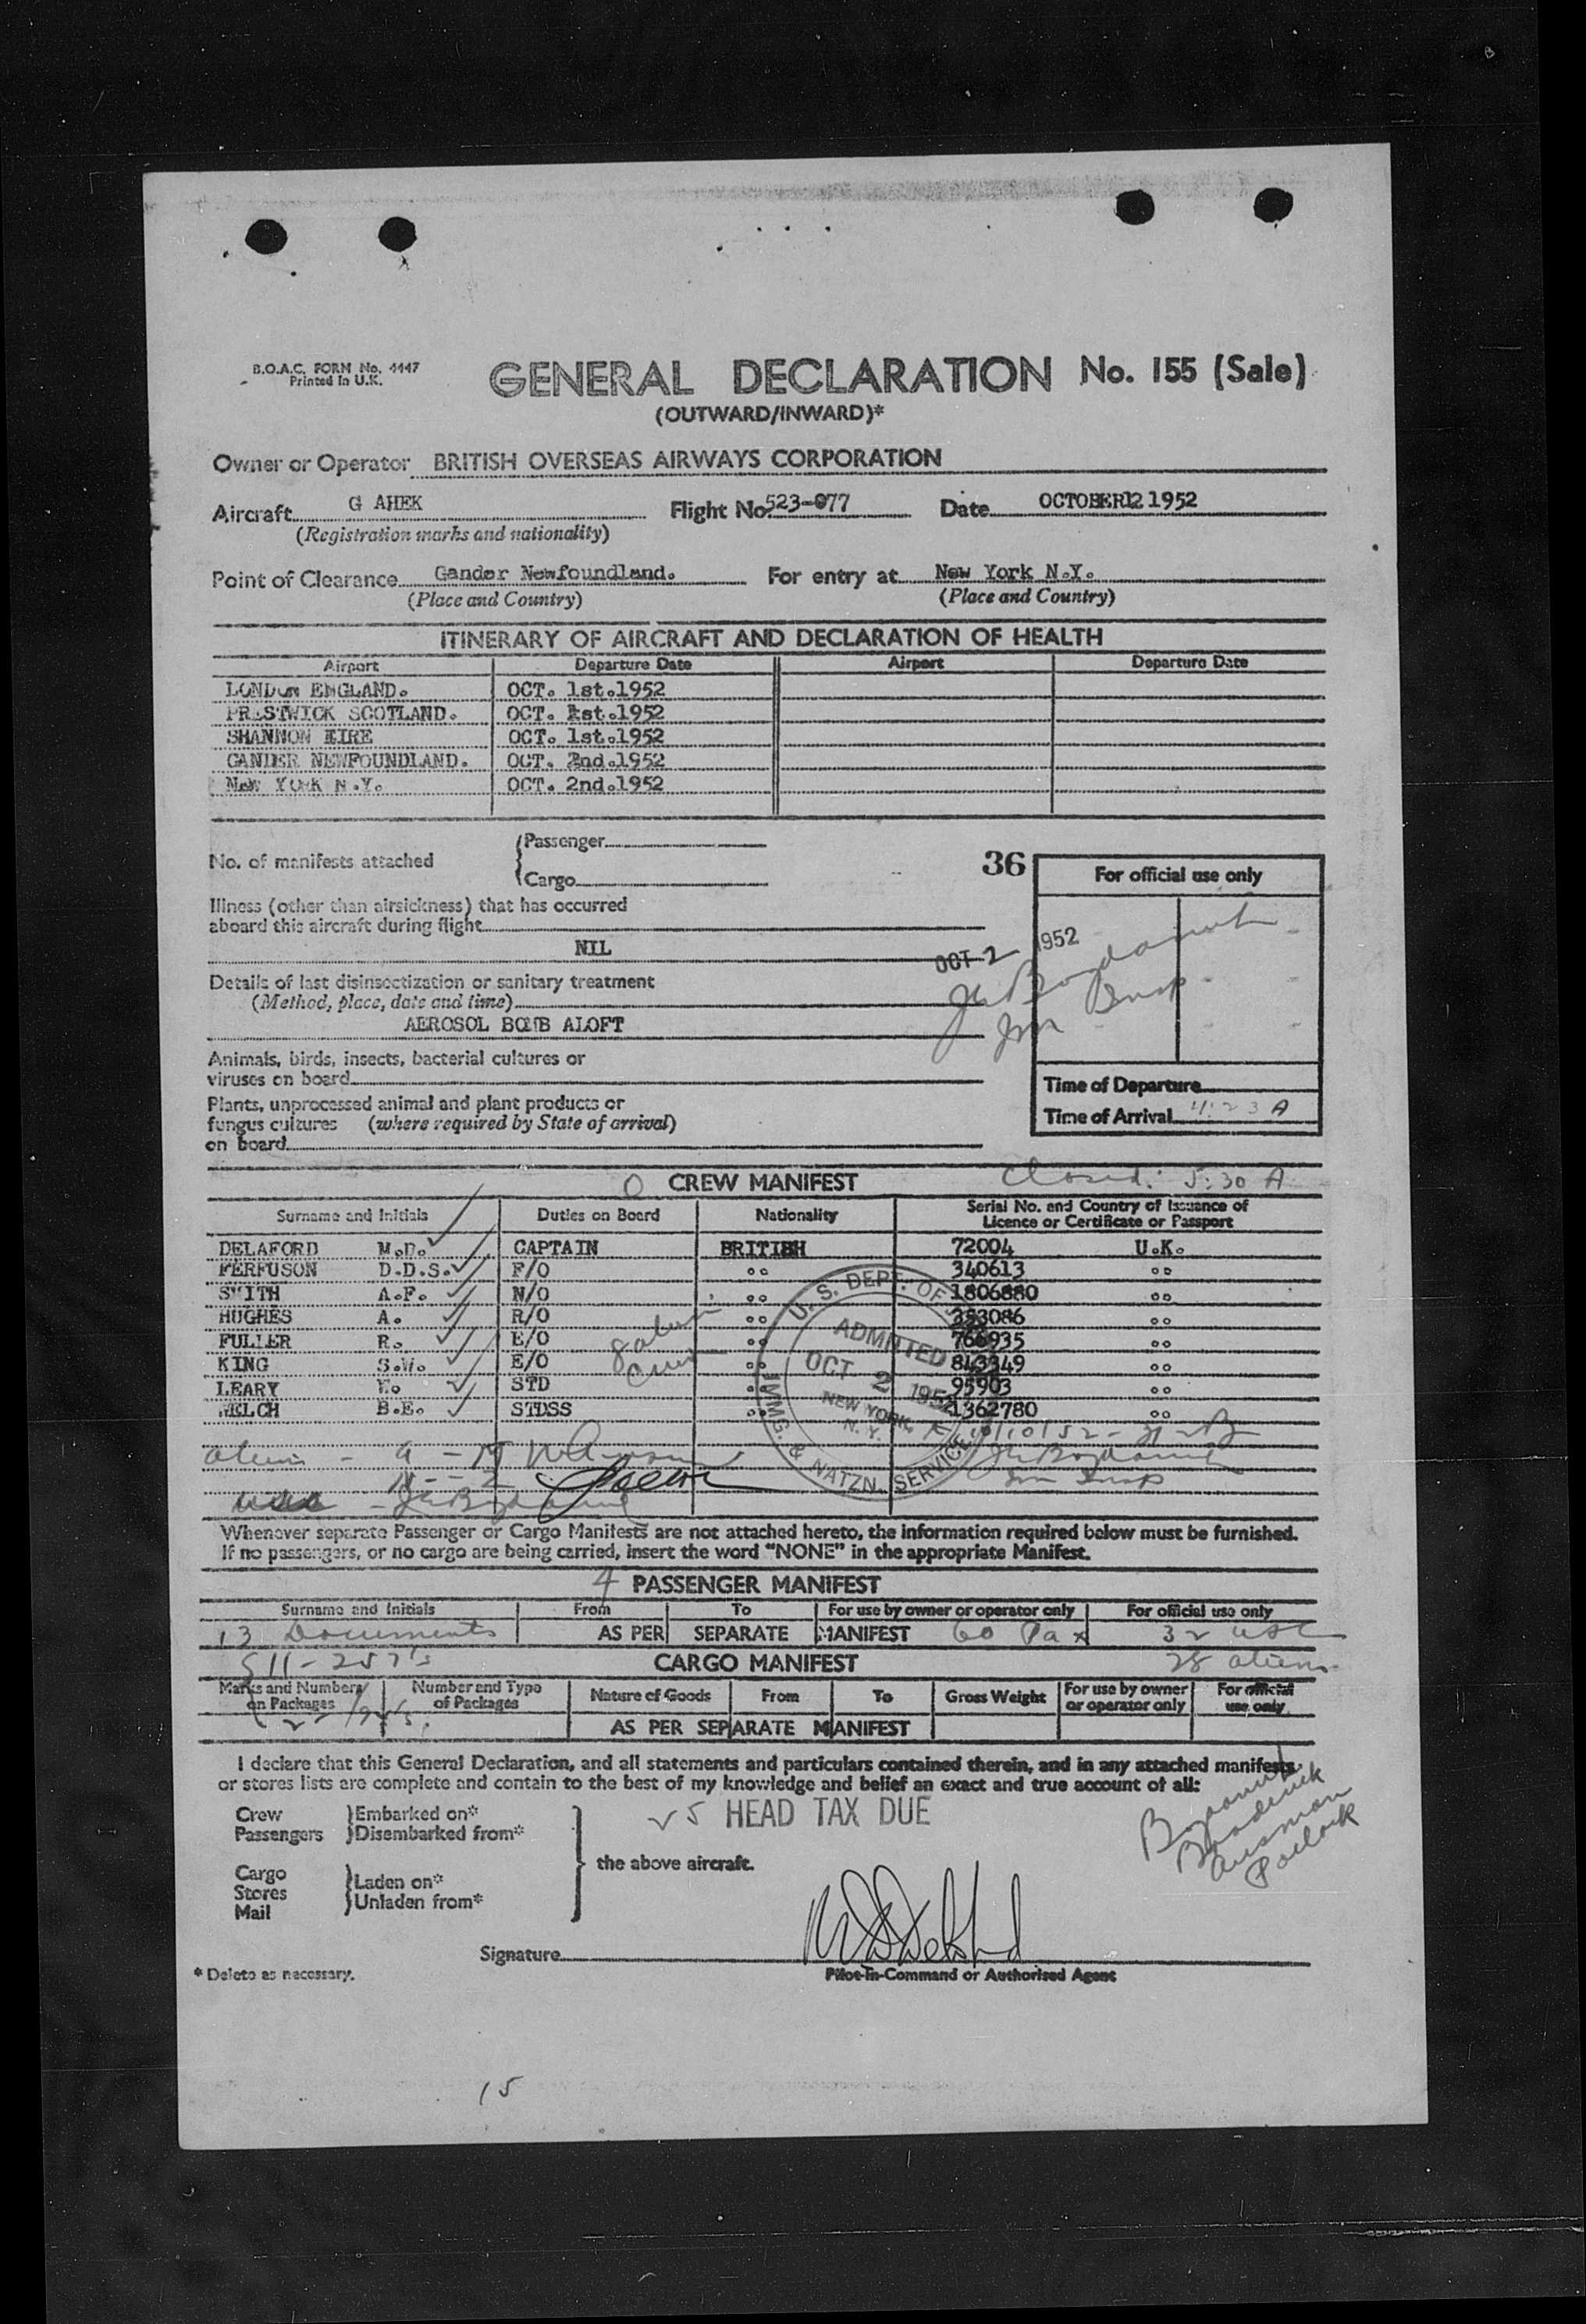 B.O.A.C. FORM No. 4447
Printed in U.K.
GENERAL DECLARATION No. 155 (Sale)
(OUTWARD/INWARD)*
Owner or Operator BRITISH OVERSEAS AIRWAYS CORPORATION
Aircraft G AHEK Flight No. 523-077 Date OCTOBER12 1952
(Registration marks and nationality)
Point of Clearance Gander Newfoundland. For entry at New York N.Y.
(Place and Country) (Place and Country)
ITINERARY OF AIRCRAFT AND DECLARATION OF HEALTH
Airport Departure Date Airport Departure Date
LONDON ENGLAND. OCT. 1st.1952
PRESTWICK SCOTLAND. OCT. 1st.1952
SHANNON EIRE OCT. 1st.1952
GANDER NEWFOUNDLAND. OCT. 2nd.1952
New YORK N.Y. OCT. 2nd.1952
No. of manifests attached
Passenger
Cargo
36
For official use only
Illness (other than airsickness) that has occurred
aboard this aircraft during flight
NIL
OCT 2 1952
Details of last disinsectization or sanitary treatment
(Method, place, date and time)
AEROSOL BOMB ALOFT
Animals, birds, insects, bacterial cultures or
viruses on board
Plants, unprocessed animal and plant products or
fungus cultures (where required by State of arrival)
on board
Time of Departure
Time of Arrival 4:23 A
O CREW MANIFEST Closed: 5:30 A
Surname and Initials Duties on Board Nationality Serial No. and Country of Issuance of
Licence or Certificate or Passport
DELAFORD M.D. CAPTAIN BRITISH 72004 U.K.
FERFUSON D.D.S. F/O °° 340613 °°
SMITH A.F. N/O °° 1806880 °°
HUGHES A. R/O °° 353086 °°
FULLER R. E/O °° 766935 °°
KING S.W. E/O °° 843349 °°
LEARY STD °° 95903 °°
WELCH B.E. STDSS °° 1362780 °°
8 alien
Crew
U. S. DEPT. OF
ADMITTED
OCT 2 1952
NEW YORK,
N. Y.
IMMG. & NATZN. SERVICE
Whenever separate Passenger or Cargo Manifests are not attached hereto, the information required below must be furnished.
If no passengers, or no cargo are being carried, insert the word "NONE" in the appropriate Manifest.
4 PASSENGER MANIFEST
Surname and Initials From To For use by owner or operator only For official use only
13 Documents AS PER SEPARATE MANIFEST 60 Pax 32 USC
CARGO MANIFEST 28 aliens
Marks and Numbers
on Packages Number and Type
of Packages Nature of Goods From To Gross Weight For use by owner
or operator only For official
use only
AS PER SEPARATE MANIFEST
I declare that this General Declaration, and all statements and particulars contained therein, and in any attached manifests
or stores lists are complete and contain to the best of my knowledge and belief an exact and true account of all:
Crew
Passengers
Embarked on*
Disembarked from*
HEAD TAX DUE
the above aircraft.
Cargo
Stores
Mail
Laden on*
Unladen from*
Signature
* Delete as necessary.
Pilot-in-Command or Authorised Agent
15